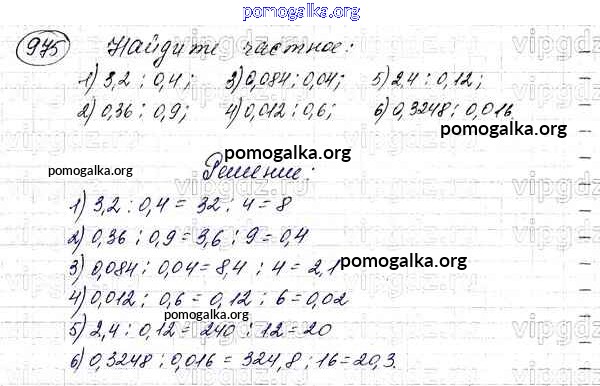 pomogalka.org
975 Найдите частное:
1) 3,2 : 0,4; 3) 0,084 : 0,04; 5) 2,4 : 0,12;
2) 0,36 : 0,9; 4) 0,012 : 0,6; 6) 0,3248 : 0,016
pomogalka.org
pomogalka.org
pomogalka.org
Решение:
1) 3,2 : 0,4 = 32 : 4 = 8
2) 0,36 : 0,9 = 3,6 : 9 = 0,4
3) 0,084 : 0,04 = 8,4 : 4 = 2,1
pomogalka.org
4) 0,012 : 0,6 = 0,12 : 6 = 0,02
pomogalka.org
5) 2,4 : 0,12 = 240 : 12 = 20
6) 0,3248 : 0,016 = 324,8 : 16 = 20,3.